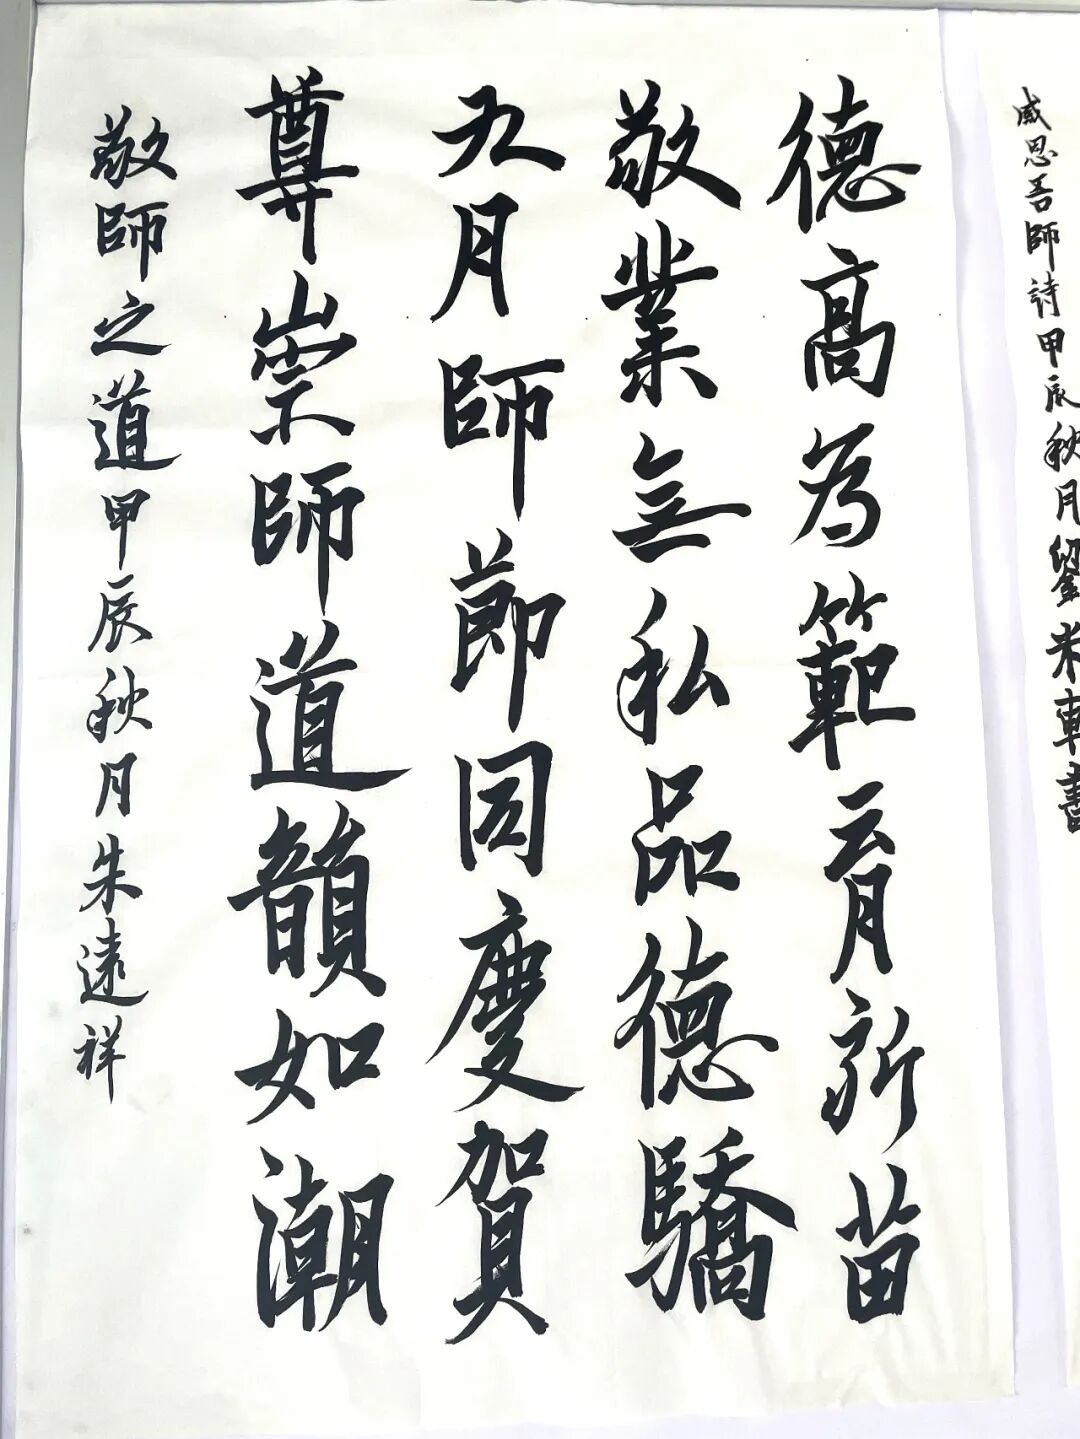 感恩吾師詩甲辰秋月劉米軒書
德高为範育新苗
敬業無私品德驕
九月師節同慶賀
尊崇師道韻如潮
敬師之道甲辰秋月朱遠祥